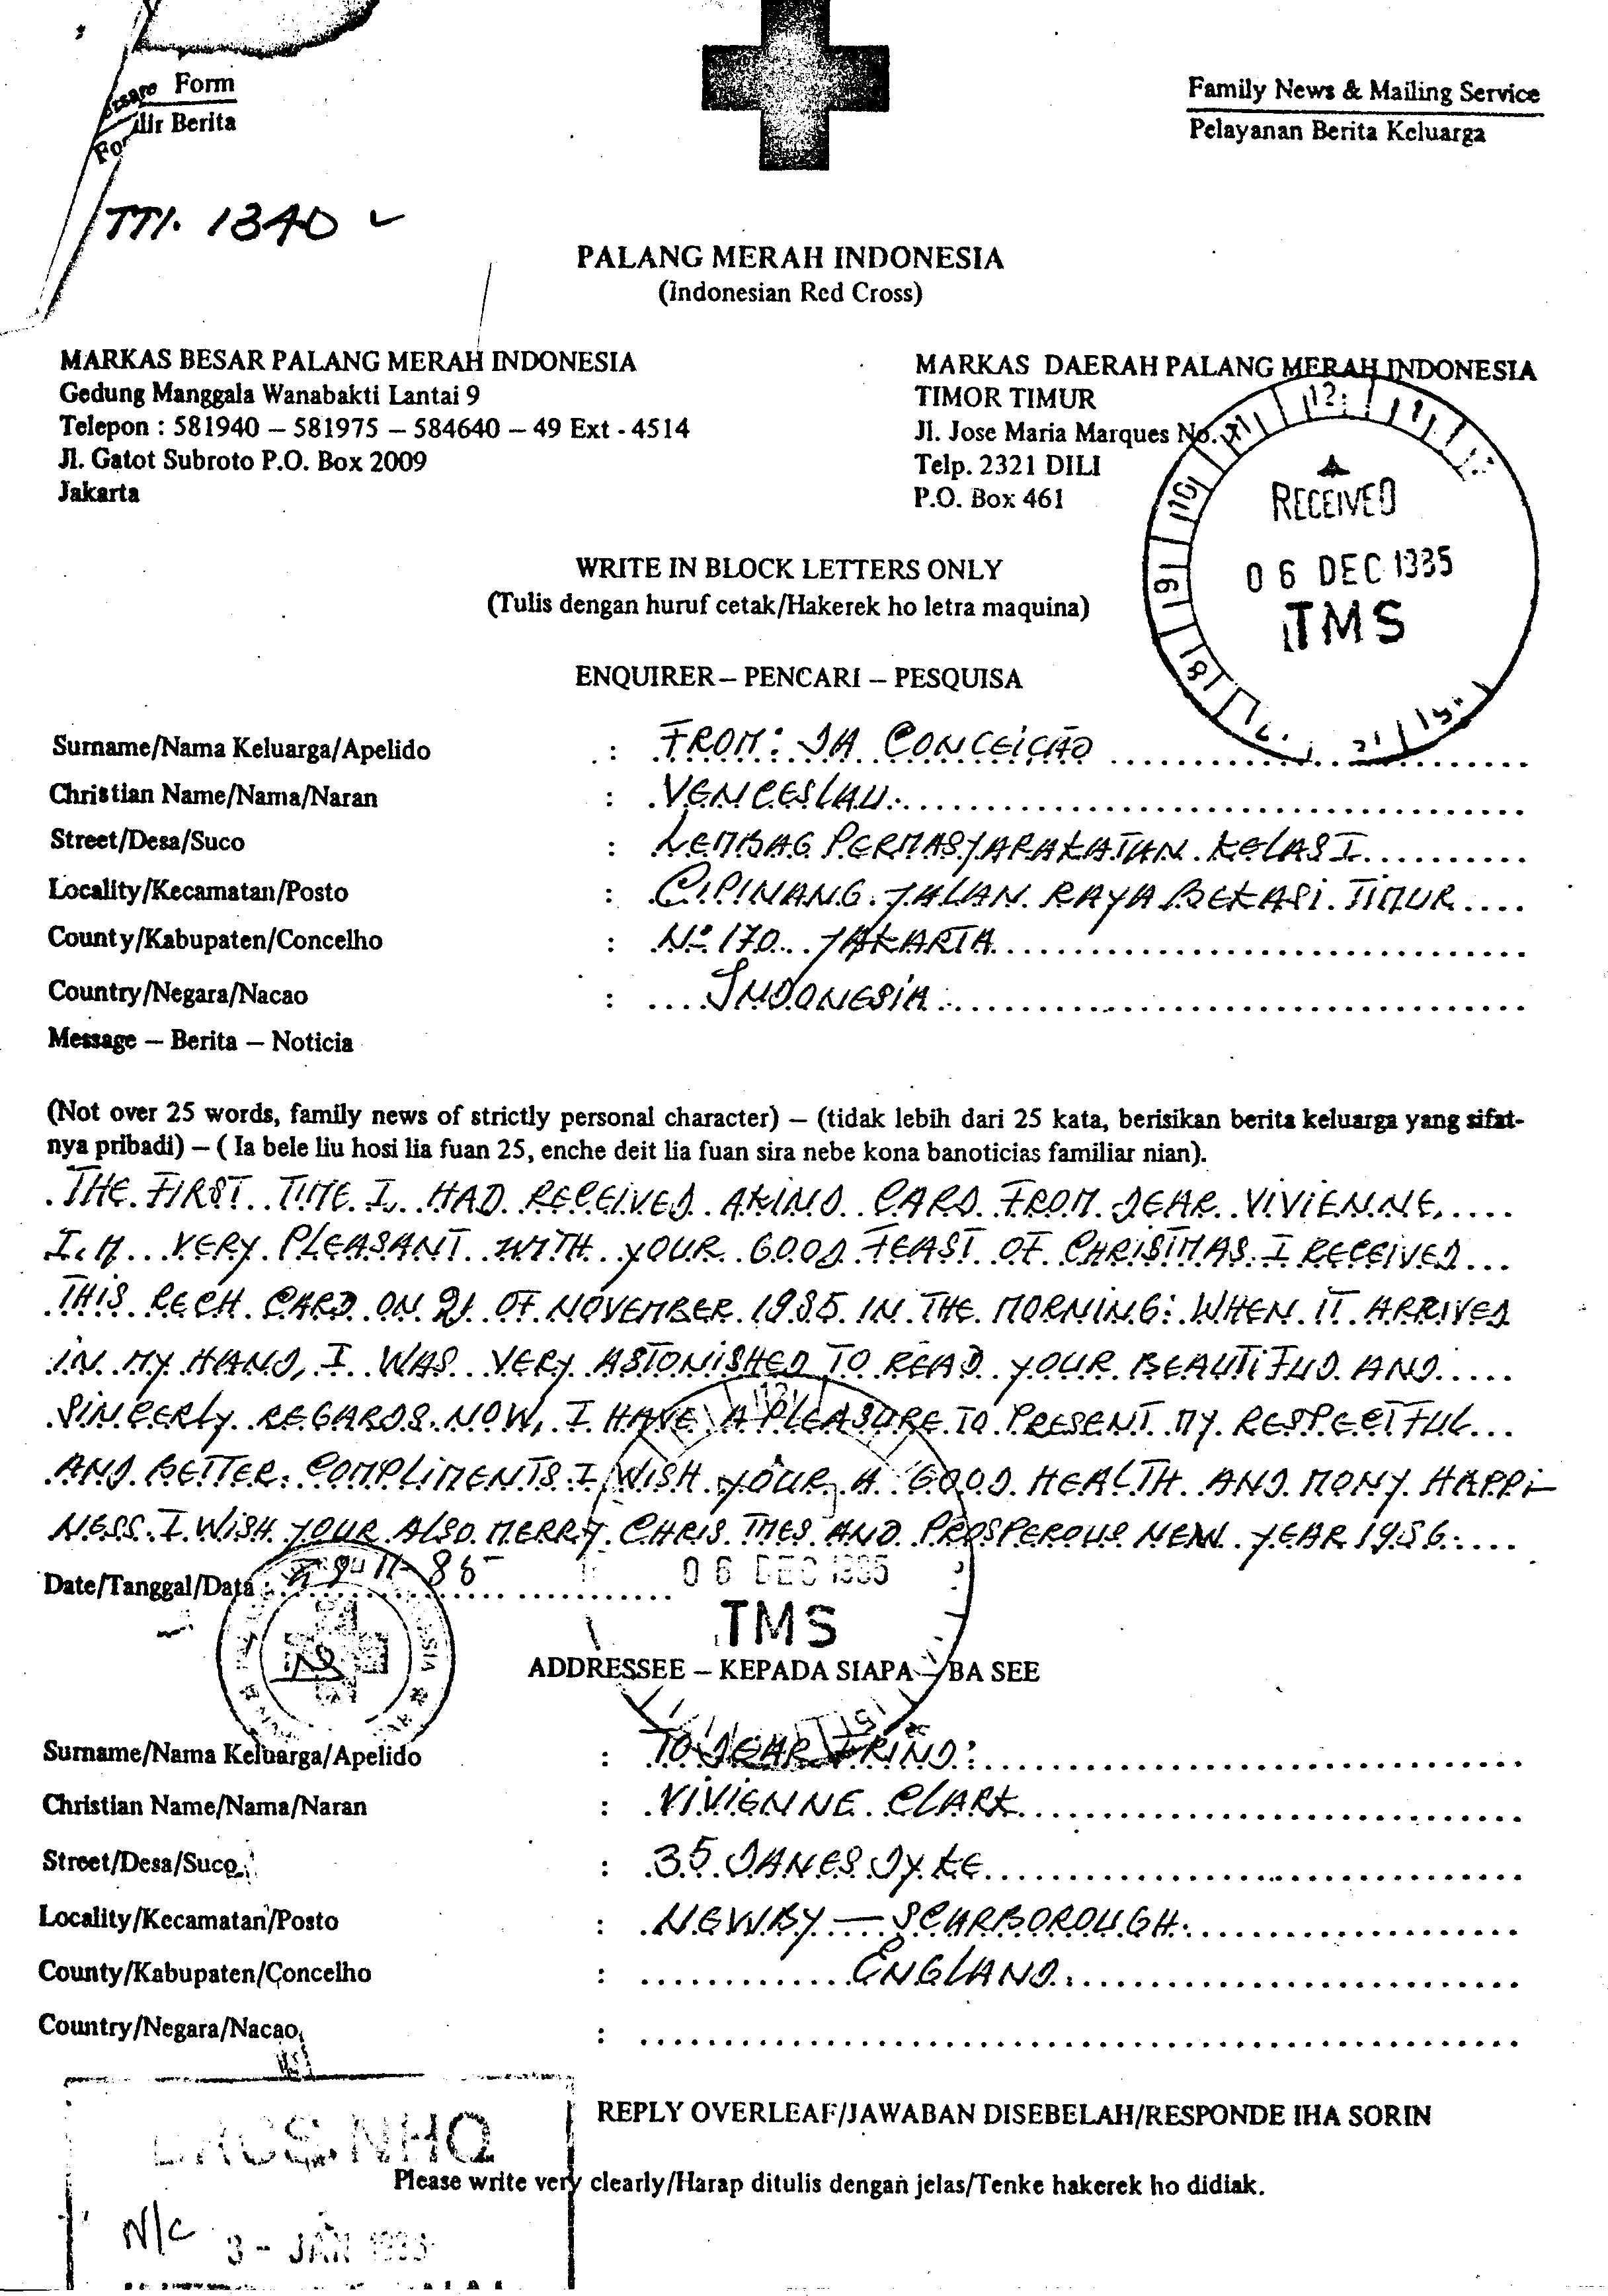 Form
Family News & Mailing Service
Berita
Pelayanan Berita Keluarga
TTI. 1340
PALANG MERAH INDONESIA
(Indonesian Red Cross)
MARKAS BESAR PALANG MERAH INDONESIA
Gedung Manggala Wanabakti Lantai 9
Telepon : 581940 – 581975 – 584640 – 49 Ext - 4514
Jl. Gatot Subroto P.O. Box 2009
Jakarta
MARKAS DAERAH PALANG MERAH INDONESIA
TIMOR TIMUR
Jl. Jose Maria Marques No.
Telp. 2321 DILI
P.O. Box 461
RECEIVED
06 DEC 1985
TMS
WRITE IN BLOCK LETTERS ONLY
(Tulis dengan huruf cetak/Hakerek ho letra maquina)
ENQUIRER – PENCARI – PESQUISA
Surname/Nama Keluarga/Apelido : FROM: DA CONCEIÇÃO
Christian Name/Nama/Naran : VENCESLAU.
Street/Desa/Suco : LEMBAG PERMASYARAKATAN KELAS I
Locality/Kecamatan/Posto : CIPINANG. JALAN RAYA BEKASI TIMUR
County/Kabupaten/Concelho : Nº 170 JAKARTA
Country/Negara/Nacao : INDONESIA.
Message – Berita – Noticia
(Not over 25 words, family news of strictly personal character) – (tidak lebih dari 25 kata, berisikan berita keluarga yang sifat-
nya pribadi) – ( Ia bele liu hosi lia fuan 25, enche deit lia fuan sira nebe kona banoticias familiar nian).
THE FIRST TIME I HAD RECEIVED AKIND CARD FROM DEAR VIVIENNE,
I,M VERY PLEASANT WITH YOUR GOOD FEAST OF CHRISTMAS. I RECEIVED
THIS RECH CARD ON 21 OF NOVEMBER 1985 IN THE MORNING: WHEN IT ARRIVED
IN MY HAND, I WAS VERY ASTONISHED TO READ YOUR BEAUTIFUD AND
SINCERLY REGARDS. NOW, I HAVE A PLEASURE TO PRESENT MY RESPECTFUL
AND BETTER COMPLIMENTS. I WISH YOUR A GOOD HEALTH AND MONY HAPPI-
NESS. I WISH YOUR ALSO MERRY CHRIS TMES AND PROSPEROUS NEW YEAR 1986.
Date/Tanggal/Data :
06 DEC 1985
TMS
ADDRESSEE – KEPADA SIAPA – BA SEE
Surname/Nama Keluarga/Apelido : TO DEAR FRIND:
Christian Name/Nama/Naran : VIVIENNE CLARK
Street/Desa/Suco : 35 DANES DYKE
Locality/Kecamatan/Posto : NEWBY – SCARBOROUGH.
County/Kabupaten/Concelho : ENGLAND.
Country/Negara/Nacao :
REPLY OVERLEAF/JAWABAN DISEBELAH/RESPONDE IHA SORIN
NHQ
Please write very clearly/Harap ditulis dengan jelas/Tenke hakerek ho didiak.
N/C 3 - JAN